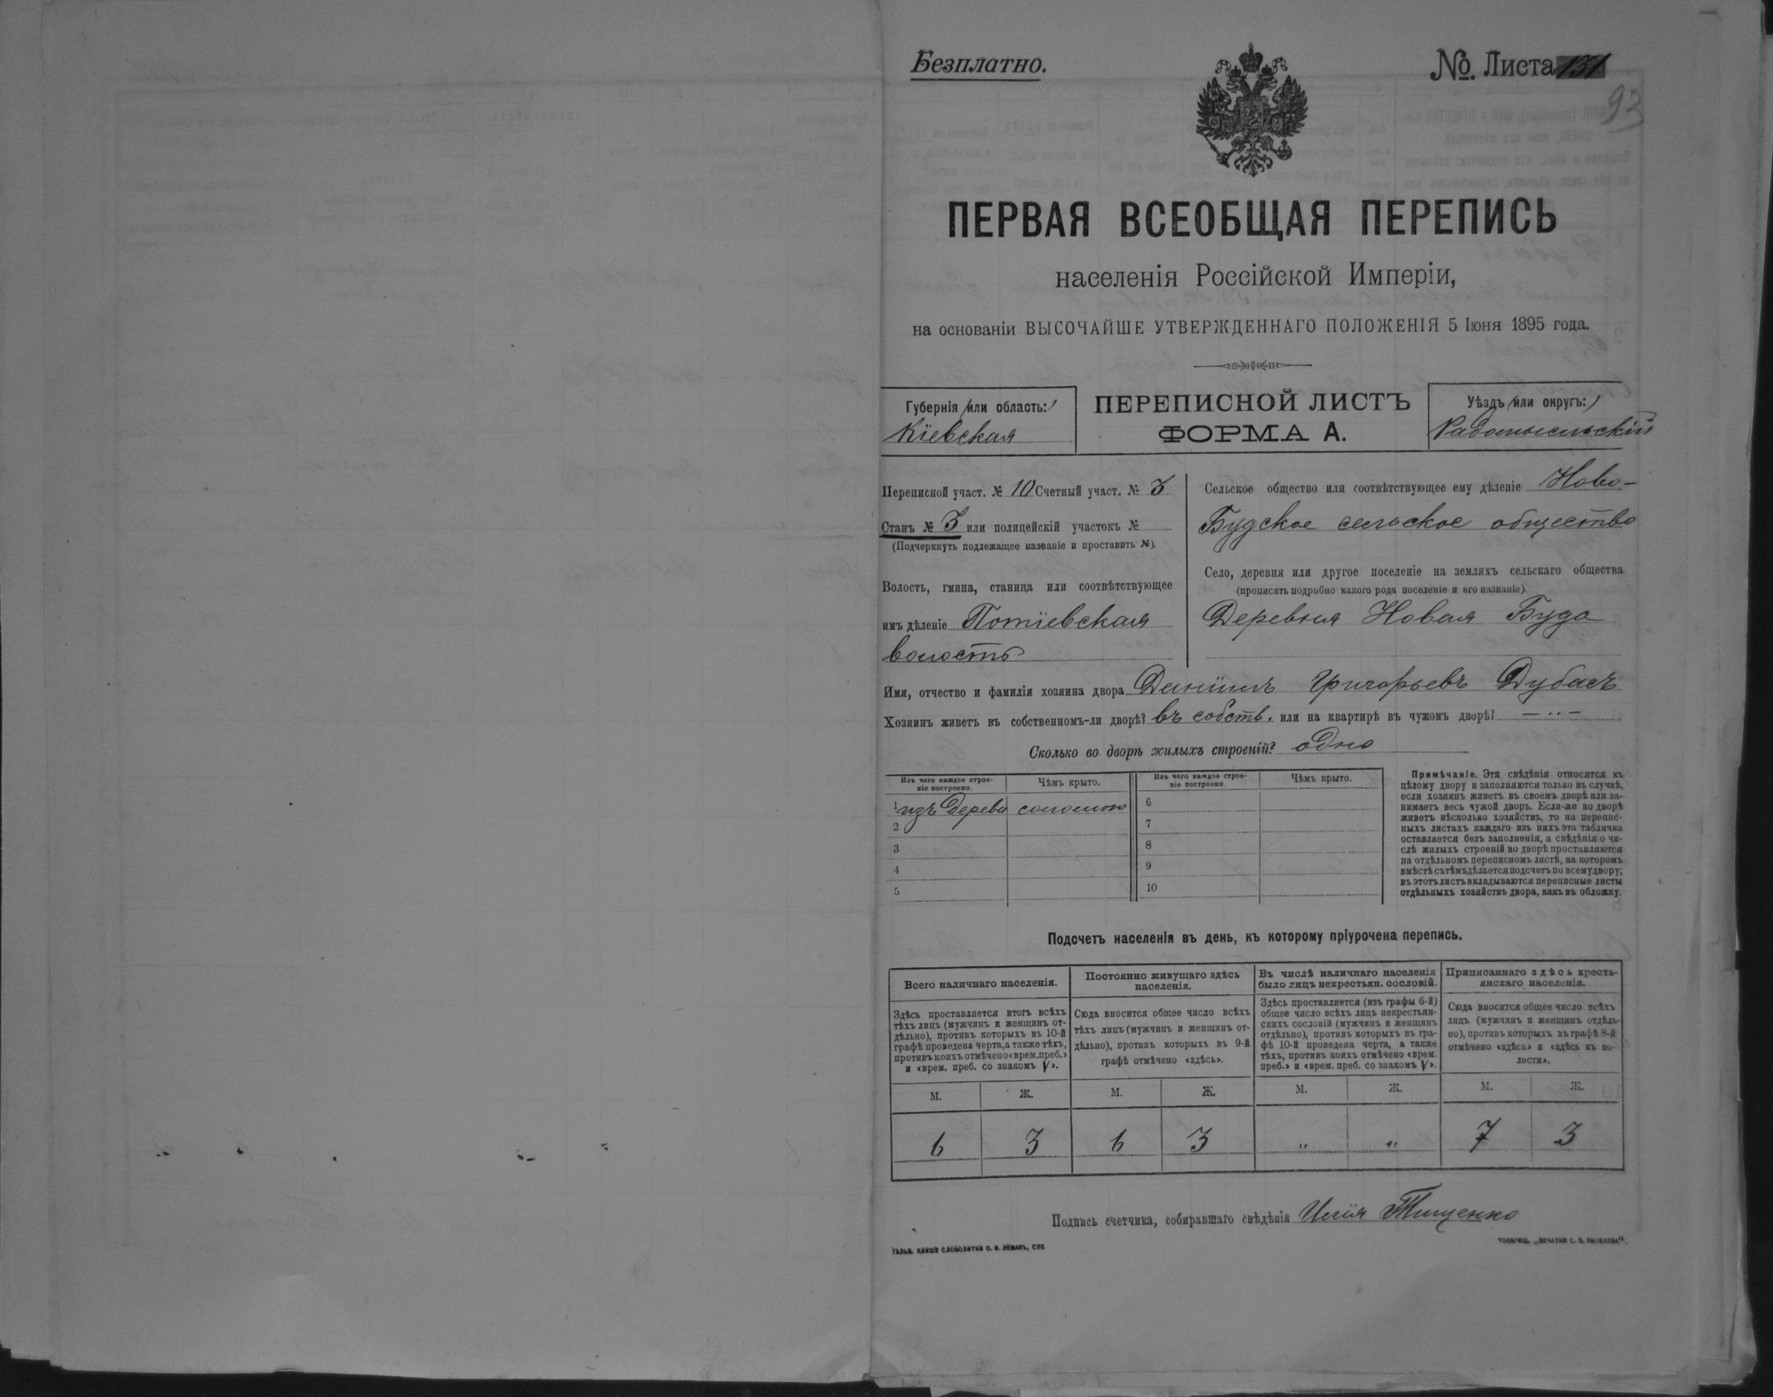 Безплатно.
№. Листа 131
93
ПЕРВАЯ ВСЕОБЩАЯ ПЕРЕПИСЬ
населенія Россійской Имперіи,
на основаніи ВЫСОЧАЙШЕ УТВЕРЖДЕННАГО ПОЛОЖЕНІЯ 5 Іюня 1895 года.
Губернія /или область:/
Кіевская
ПЕРЕПИСНОЙ ЛИСТЪ
ФОРМА А.
Уѣздъ /или округъ:/
Радомысльскій
Переписной участ. № 10 Счетный участ. № 3
Станъ № 3 или полицейскій участокъ №
(Подчеркнуть подлежащее названіе и проставить №).
Волость, гмина, станица или соотвѣтствующее
имъ дѣленіе Потіевская
волость
Сельское общество или соотвѣтствующее ему дѣленіе Ново-
Будское сельское общество
Село, деревня или другое поселеніе на земляхъ сельскаго общества
(прописать подробно какого рода поселеніе и его названіе).
Деревня Новая Буда
Имя, отчество и фамилія хозяина двора Даніилъ Григорьевъ Дубасъ
Хозяинъ живетъ въ собственномъ-ли дворѣ? въ собств. или на квартирѣ въ чужомъ дворѣ? — „ —
Сколько во дворѣ жилыхъ строеній? одно
Изъ чего каждое строе-
ніе построено.
Чѣмъ крыто.
Изъ чего каждое строе-
ніе построено.
Чѣмъ крыто.
1 изъ дерева соломою
2
3
4
5
6
7
8
9
10
Примѣчаніе. Эти свѣдѣнія относятся къ
цѣлому двору и заполняются только въ случаѣ,
если хозяинъ живетъ въ своемъ дворѣ или за-
нимаетъ весь чужой дворъ. Если-же во дворѣ
живетъ нѣсколько хозяйствъ, то на перепис-
ныхъ листахъ каждаго изъ нихъ эта табличка
оставляется безъ заполненія, а свѣдѣнія о чи-
слѣ жилыхъ строеній во дворѣ проставляются
на отдѣльномъ переписномъ листѣ, на которомъ
вмѣстѣ съ тѣмъ дѣлается подсчетъ по всему двору;
въ этотъ листъ вкладываются переписные листы
отдѣльныхъ хозяйствъ двора, какъ въ обложку.
Подсчетъ населенія въ день, къ которому пріурочена перепись.
Всего наличнаго населенія.
Постоянно живущаго здѣсь
населенія.
Въ числѣ наличнаго населенія
было лицъ некрестьян. сословій.
Приписаннаго здѣсь кресть-
янскаго населенія.
Здѣсь проставляется итогъ всѣхъ
тѣхъ лицъ (мужчинъ и женщинъ от-
дѣльно), противъ которыхъ въ 10-й
графѣ проведена черта, а также тѣхъ,
противъ коихъ отмѣчено «врем. преб.»
и «врем. преб. со знакомъ V».
Сюда вносится общее число всѣхъ
тѣхъ лицъ (мужчинъ и женщинъ от-
дѣльно), противъ которыхъ въ 9-й
графѣ отмѣчено «здѣсь».
Здѣсь проставляется (изъ графы 6-й)
общее число всѣхъ лицъ некрестьян-
скихъ сословій (мужчинъ и женщинъ
отдѣльно), противъ которыхъ въ гра-
фѣ 10-й проведена черта, а также
тѣхъ, противъ коихъ отмѣчено «врем.
преб.» и «врем. преб. со знакомъ V».
Сюда вносится общее число всѣхъ
лицъ (мужчинъ и женщинъ отдѣль-
но), противъ которыхъ въ графѣ 8-й
отмѣчено «здѣсь» и «здѣсь къ во-
лости».
М. Ж. М. Ж. М. Ж. М. Ж.
6 3 6 3 „ „ 7 3
Подпись счетчика, собиравшаго свѣдѣнія Илія Тищенко
ГАЛЬВ. КЛИШЕ СЛОВОЛИТНИ О. И. ЛЕМАНЪ, СПБ
ТОВАРИЩ. „ПЕЧАТНЯ С. П. ЯКОВЛЕВА“.